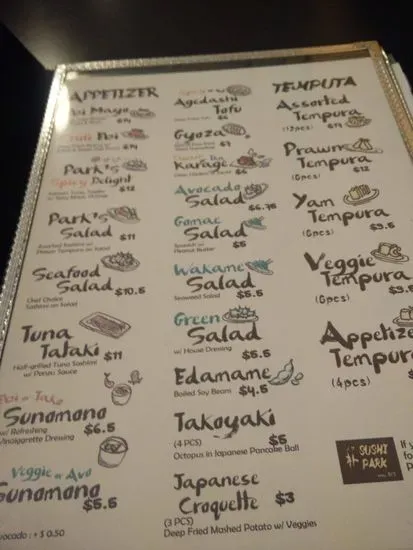 APPETIZER
Poi Mayo
$14
Chili Poi
$14
Park's
Spicy Delight
$12
Park's
Salad $11
Assorted Sashimi w/
Ponzu Tempura on Salad
Seafood
Salad $10.5
Chef Choice
Sashimi on Salad
Tuna
Tataki $11
Half-grilled Tuna Sashimi
w/ Ponzu Sauce
Poi or Tako
Sunomono
w/ Refreshing $6.5
Vinaigrette Dressing
Veggie or Avo
Sunomono
$5.5
Avocado : + $ 0.50
Agedashi
Tofu
$6
Gyoza
$7
Karage
$6
Avocado
Salad $6.75
Gomae
Salad
Spinach w/ $5
Peanut Butter
Wakame
Salad
Seaweed Salad $5.5
Green
Salad
w/ House Dressing
$5.5
Edamame
Boiled Soy Beans $4.5
Takoyaki
(4 PCS) $5
Octopus in Japanese Pancake Ball
Japanese
Croquette $3
(3 PCS)
Deep Fried Mashed Potato w/ Veggies
TEMPURA
Assorted
Tempura
$14
Prawn
Tempura
(6pcs) $12
Yam
Tempura
(6pcs) $9.5
Veggie
Tempura
(6pcs)
Appetizer
Tempura
(4pcs)
SUSHI
PARK